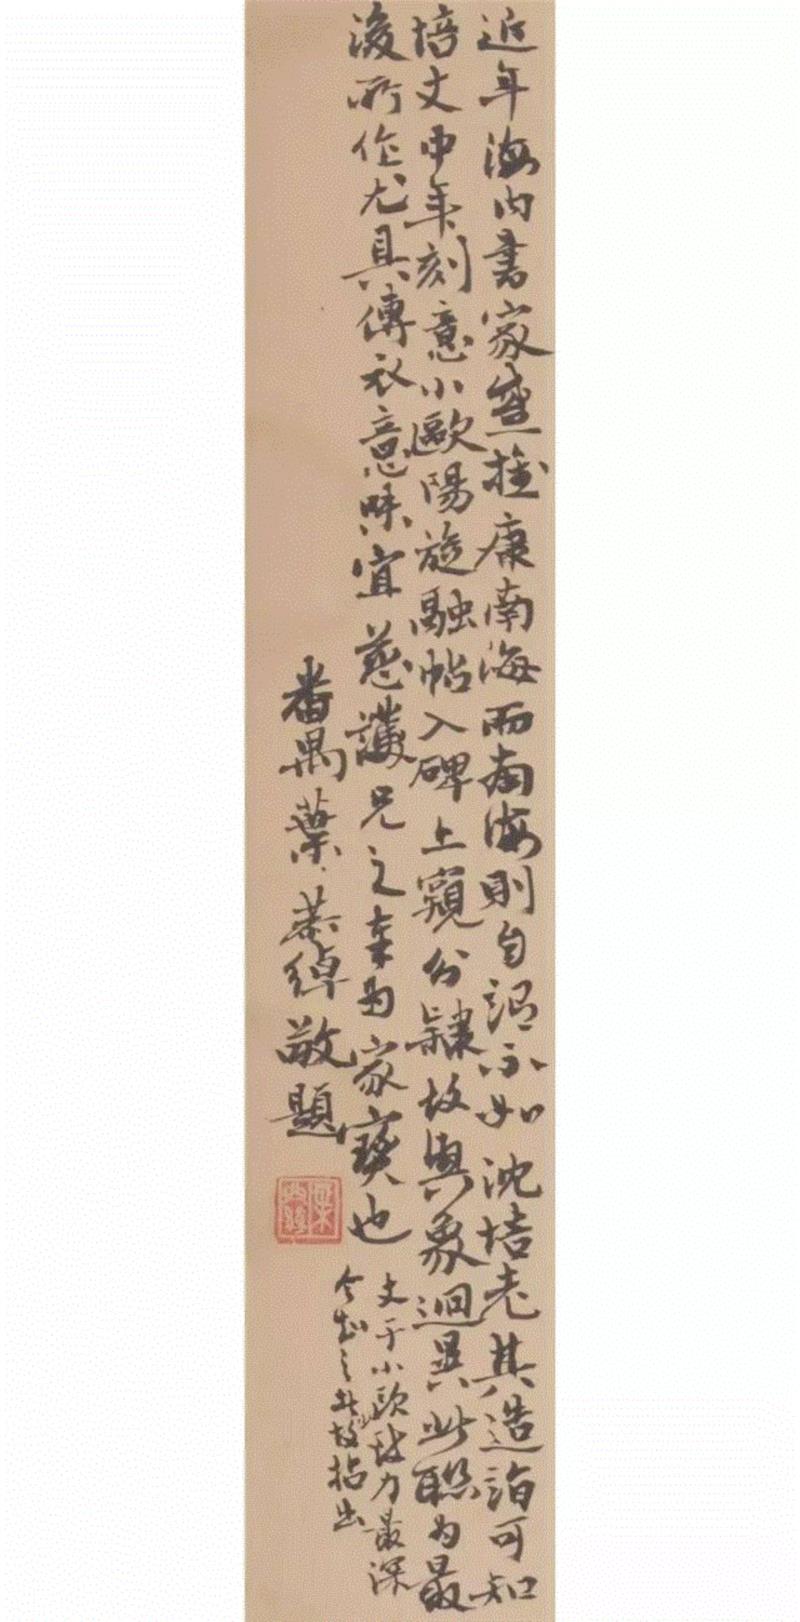 近年海內書家盛推康南海而南海則自謂不如沈培老其造詣可知
培丈中年刻意小歐陽旋融帖入碑上窺分隸故興象迥異此聯为最
後所作尤具傳衣意味宜慈護兄之奉为家寶也
番禺葉恭綽敬題
丈于小欧致力最深
今知之者故拈出